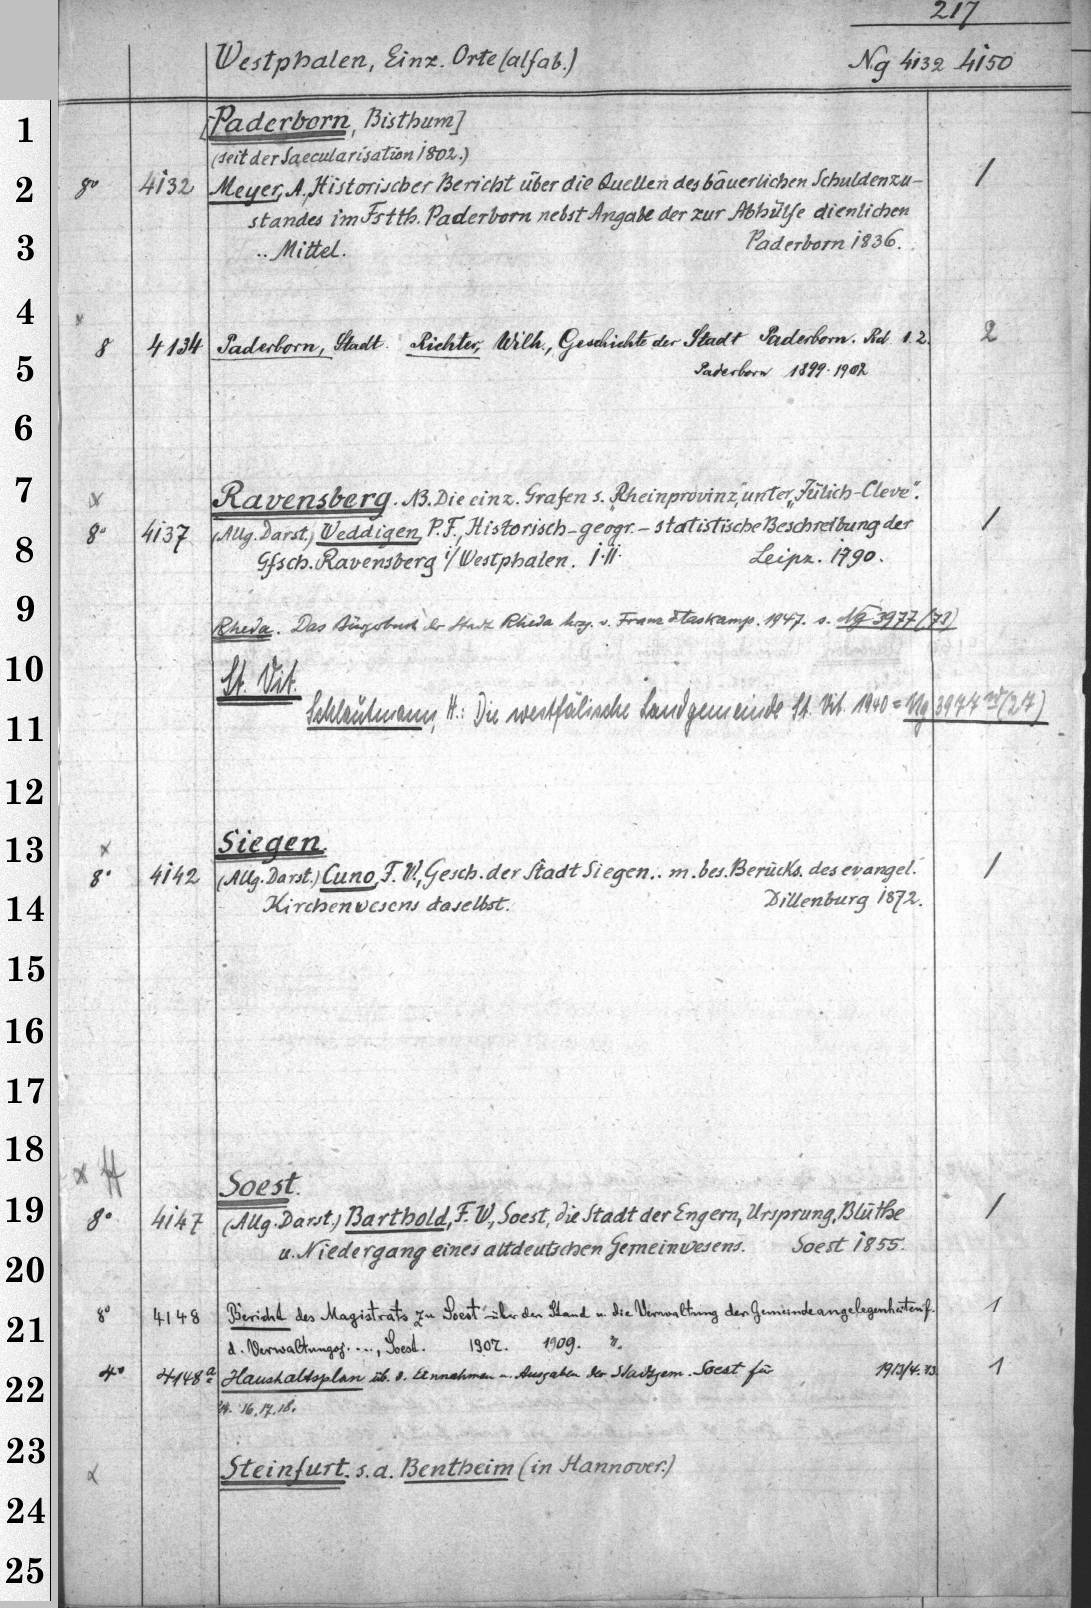 217
Westphalen, Einz. Orte (alfab.) Ng 4132 4150
1 [Paderborn, Bisthum]
(seit der Saecularisation 1802.)
2 8° 4132 Meyer, A., Historischer Bericht über die Quellen des bäuerlichen Schuldenzu- 1
standes im Fstth. Paderborn nebst Angabe der zur Abhülfe dienlichen
3 .. Mittel. Paderborn 1836.
4 x
8 4134 Paderborn, Stadt. Richter, Wilh., Geschichte der Stadt Paderborn. Bd 1.2. 2
5 Paderborn 1899-1902
6
7 x Ravensberg. NB. Die einz. Grafen s. „Rheinprovinz", unter „Jülich-Cleve".
8° 4137 (Allg. Darst.) Weddigen, P. F., Historisch-geogr.-statistische Beschreibung der 1
8 Gfsch. Ravensberg i/Westphalen. I.II. Leipz. 1790.
9 Rheda. Das Bürgerbuch der Stadt Rheda hrsg. v. Franz Flaskamp. 1947. s. Ng 3977 (73)
10 St. Vit.
11 Schlautmann, H.: Die westfälische Landgemeinde St. Vit. 1940 = Ng 3977 (27)
12
13 x Siegen.
8° 4142 (Allg. Darst.) Cuno, F. W., Gesch. der Stadt Siegen.. m. bes. Berücks. des evangel. 1
14 Kirchenwesens daselbst. Dillenburg 1872.
15
16
17
18
x H Soest.
19 8° 4147 (Allg. Darst.) Barthold, F. W., Soest, die Stadt der Engern, Ursprung, Blüthe 1
20 u. Niedergang eines altdeutschen Gemeinwesens. Soest 1855.
8° 4148 Bericht des Magistrats zu Soest über den Stand u. die Verwaltung der Gemeindeangelegenheiten f. 1
21 d. Verwaltungsj. ...., Soest. 1907. 1909.
22 4° 4148a Haushaltsplan üb. d. Einnahmen u. Ausgaben der Stadtgem. Soest für 1913/4. 1
16. 17. 18.
23 Steinfurt. s. a. Bentheim (in Hannover.)
24
25